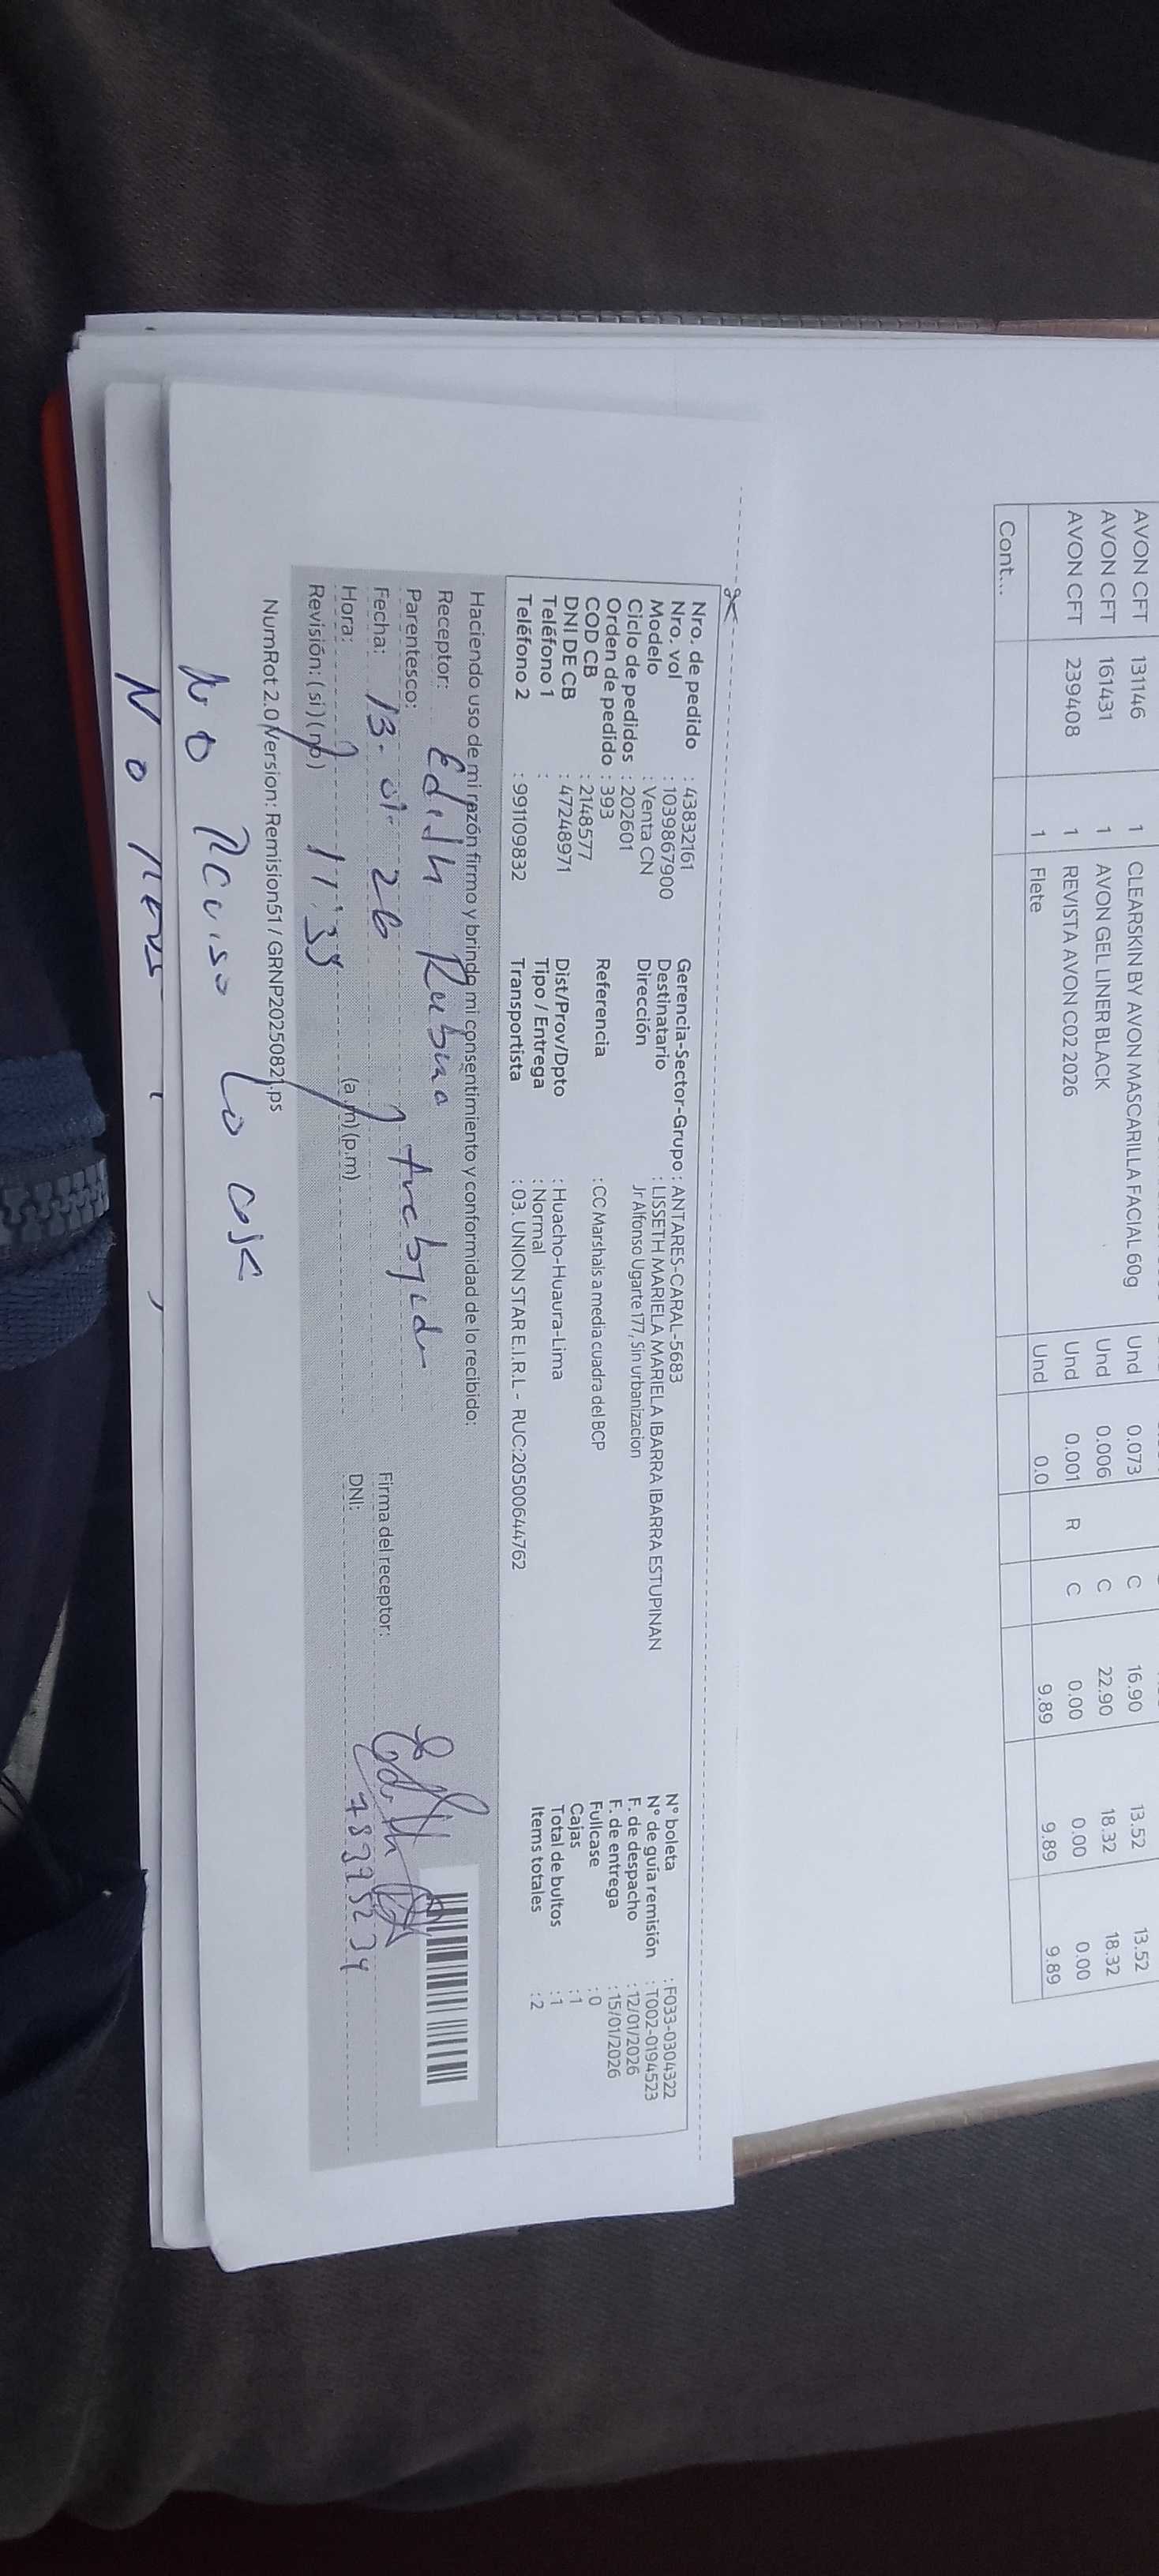 AVON CFT 131146 1 CLEARSKIN BY AVON MASCARILLA FACIAL 60g Und 0.073 C 16.90 13.52 13.52
AVON CFT 161431 1 AVON GEL LINER BLACK Und 0.006 C 22.90 18.32 18.32
AVON CFT 239408 1 REVISTA AVON C02 2026 Und 0.001 R C 0.00 0.00 0.00
1 Flete Und 0.0 9.89 9.89 9.89
Cont...
Nro. de pedido : 43832161
Nro. vol : 1039867900
Modelo : Venta CN
Ciclo de pedidos : 202601
Orden de pedido : 393
COD CB : 2148577
DNI DE CB : 47248971
Teléfono 1 :
Teléfono 2 : 991109832
Gerencia-Sector-Grupo : ANTARES-CARAL-5683
Destinatario : LISSETH MARIELA MARIELA IBARRA IBARRA ESTUPINAN
Dirección Jr Alfonso Ugarte 177, Sin urbanizacion
Referencia : CC Marshals a media cuadra del BCP
Dist/Prov/Dpto : Huacho-Huaura-Lima
Tipo / Entrega : Normal
Transportista : 03. UNION STAR E.I.R.L - RUC:20500644762
N° boleta : F033-0304322
N° de guía remisión : T002-0194523
F. de despacho : 12/01/2026
F. de entrega : 15/01/2026
Fullcase : 0
Cajas : 1
Total de bultos : 1
Items totales : 2
Haciendo uso de mi razón firmo y brindo mi consentimiento y conformidad de lo recibido:
Receptor: Edith Rubina
Parentesco:
Fecha: 13-01-26
Firma del receptor: Edith
Hora: 11:39 (a.m) (p.m)
DNI:
Revisión: ( si ) ( no )
NumRot 2.0 / Version: Remision51 / GRNP20250821.ps
No Reviso Lo
No